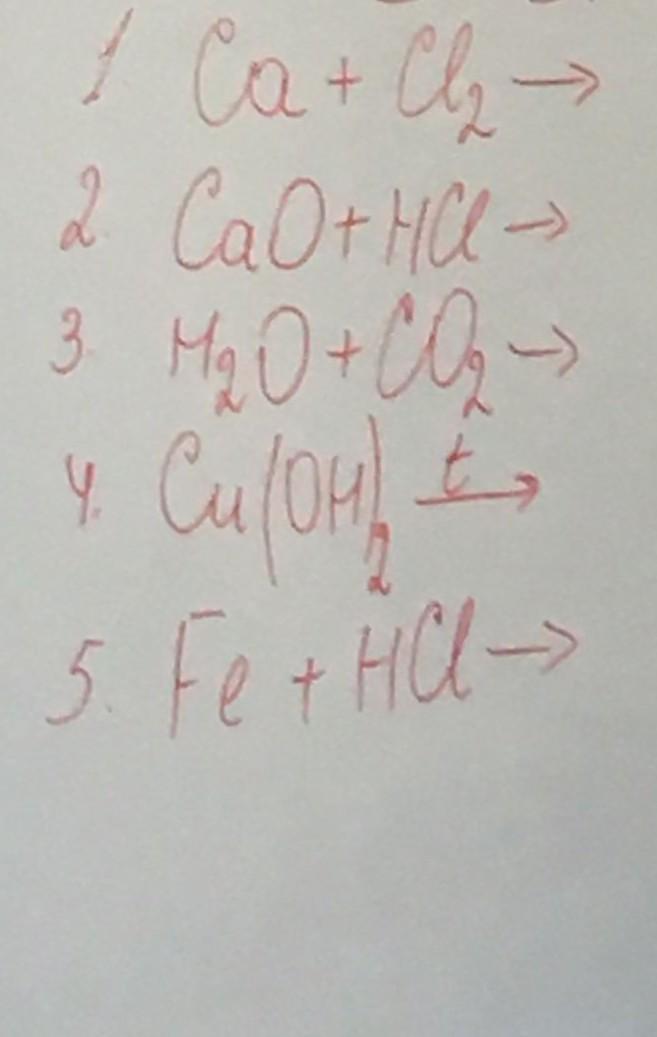 1 Ca + Cl₂ →
2 CaO + HCl →
3. H₂O + CO₂ →
4. Cu(OH)₂ t→
5. Fe + HCl →